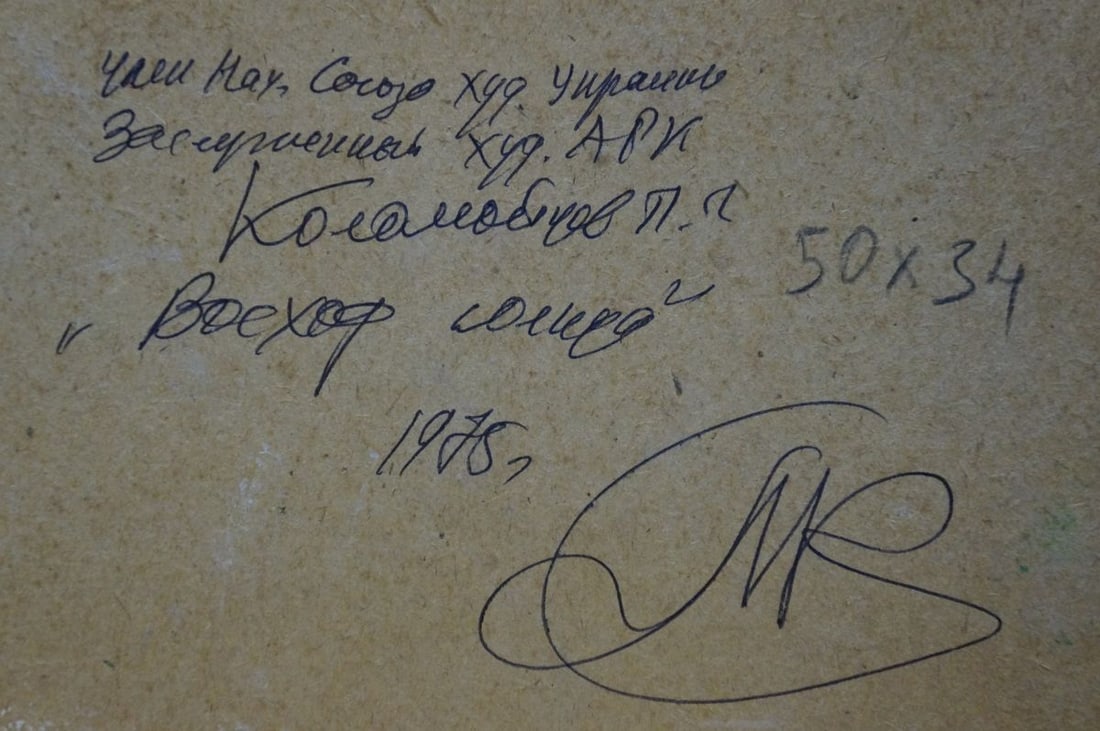 Член Нац. Союза худ. Украины
Заслуженный худ. АРК
Коломойцов П. Г
50х34
"Восход солнца"
1975г